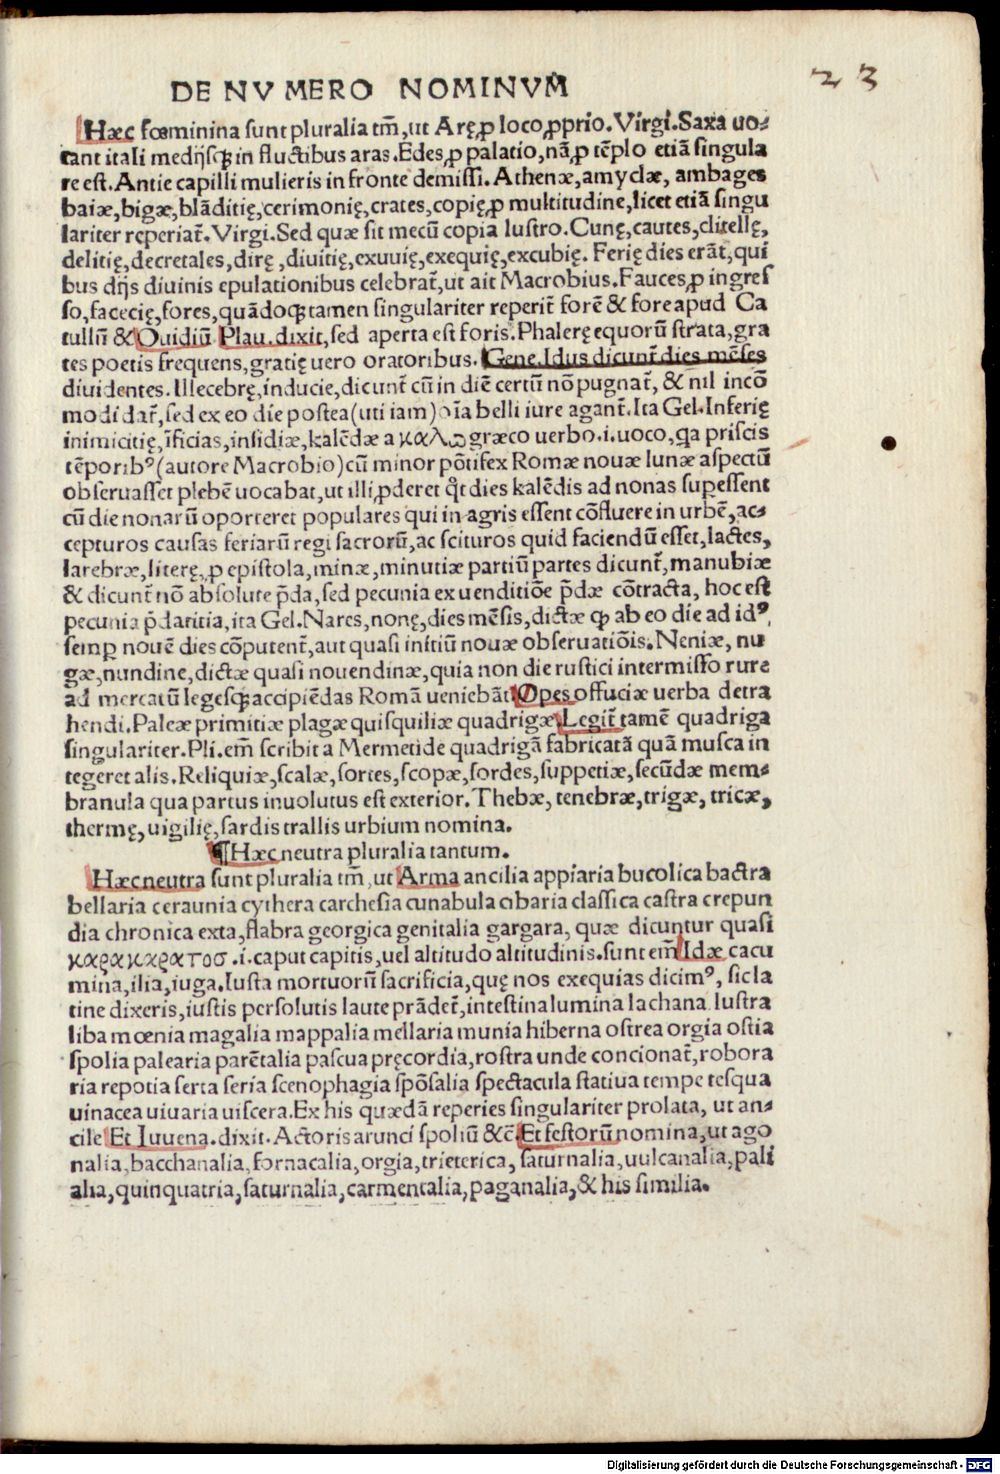 DE NVMERO NOMINVM
23
Hæc fœminina sunt pluralia tm̄, ut Aręꝓ loco ꝓprio. Virgi. Saxa uo-
cant itali medijsꝗ in fluctibus aras. Edes, ꝓ palatio, nā, ꝓ tēplo etiā singula
re est. Antie capilli mulieris in fronte demissi. Athenæ, amyclæ, ambages
baiæ, bigæ, blāditię, cerimonię, crates, copię, ꝓ multitudine, licet etiā singu
lariter reperiat᷑. Virgi. Sed quæ sit mecū copia lustro. Cunę, cautes, clitellę,
delitię, decretales, dirę, diuitię, exuuię, exequię, excubię. Ferię dies erāt, qui
bus dijs diuinis epulationibus celebrat᷑, ut ait Macrobius. Fauces, ꝓ ingres
so, facecię, fores, quādoꝗ tamen singulariter reperit᷑ forē & fore apud Ca
tullū & Ouidiū Plau. dixit, sed aperta est foris. Phalerę equorū strata, gra
tes poetis frequens, gratię uero oratoribus. Gene. Idus dicunt᷑ dies mēses
diuidentes. Illecebrę, inducie, dicunt᷑ cū in diē certū nō pugnat᷑, & nil incō
modi dat᷑, sed ex eo die postea (uti iam) oīa belli iure agant᷑. Ita Gel. Inferię
inimicitię, īficias, insidiæ, kalēdæ a καλω græco uerbo .i. uoco, qa priscis
tēporibꝰ (autore Macrobio) cū minor pōtifex Romæ nouæ lunæ aspectū
obseruasset plebē uocabat, ut illi ꝓderet qt dies kalēdis ad nonas suꝑessent
cū die nonarū oporteret populares qui in agris essent cōfluere in urbē, ac-
cepturos causas feriarū regi sacrorū, ac scituros quid faciendū esset, lactes,
latebræ, literę, ꝓ epistola, minæ, minutiæ partiū partes dicunt᷑, manubiæ
& dicunt᷑ nō absolute p̄da, sed pecunia ex uenditiōe p̄dæ cōtracta, hoc est
pecunia p̄datitia, ita Gel. Nares, nonę, dies mēsis, dictæ ꝙ ab eo die ad idꝰ
semꝑ nouē dies cōputent᷑, aut quasi initiū nouæ obseruatiōis. Neniæ, nu
gæ, nundine, dictæ quasi nouendinæ, quia non die rustici intermisso rure
ad mercatū legesꝗ accipiēdas Romā ueniebāt Opes offuciæ uerba detra
hendi. Paleæ primitiæ plagæ quisquiliæ quadrigæ Legit᷑ tamē quadriga
singulariter. Pli. em̄ scribit a Mermetide quadrigā fabricatā quā musca in
tegeret alis. Reliquiæ, scalæ, sortes, scopæ, sordes, suppetiæ, secūdæ mem-
branula qua partus inuolutus est exterior. Thebæ, tenebræ, trigæ, tricæ,
thermę, uigilię, sardis trallis urbium nomina.
¶ Hæc neutra pluralia tantum.
Hæc neutra sunt pluralia tm̄, ut Arma ancilia appiaria bucolica bactra
bellaria ceraunia cythera carchesia cunabula cibaria classica castra crepun
dia chronica exta, flabra georgica genitalia gargara, quæ dicuntur quasi
καρα καρατοσ .i. caput capitis, uel altitudo altitudinis. sunt em̄ Idæ cacu
mina, ilia, iuga. Iusta mortuorū sacrificia, quę nos exequias dicimꝰ, sic la
tine dixeris, iustis persolutis laute prādet᷑, intestina lumina lachana lustra
liba mœnia magalia mappalia mellaria munia hiberna ostrea orgia ostia
spolia palearia parētalia pascua pręcordia, rostra unde concionat᷑, robora
ria repotia serta seria scenophagia spōsalia spectacula statiua tempe tesqua
uinacea uiuaria uiscera. Ex his quædā reperies singulariter prolata, ut an-
cile Et Iuuena. dixit. Actoris arunci spoliū &c̄. Et festorū nomina, ut ago
nalia, bacchanalia, fornacalia, orgia, trieterica, saturnalia, uulcanalia, pali
alia, quinquatria, saturnalia, carmentalia, paganalia, & his similia.
Digitalisierung gefördert durch die Deutsche Forschungsgemeinschaft - DFG